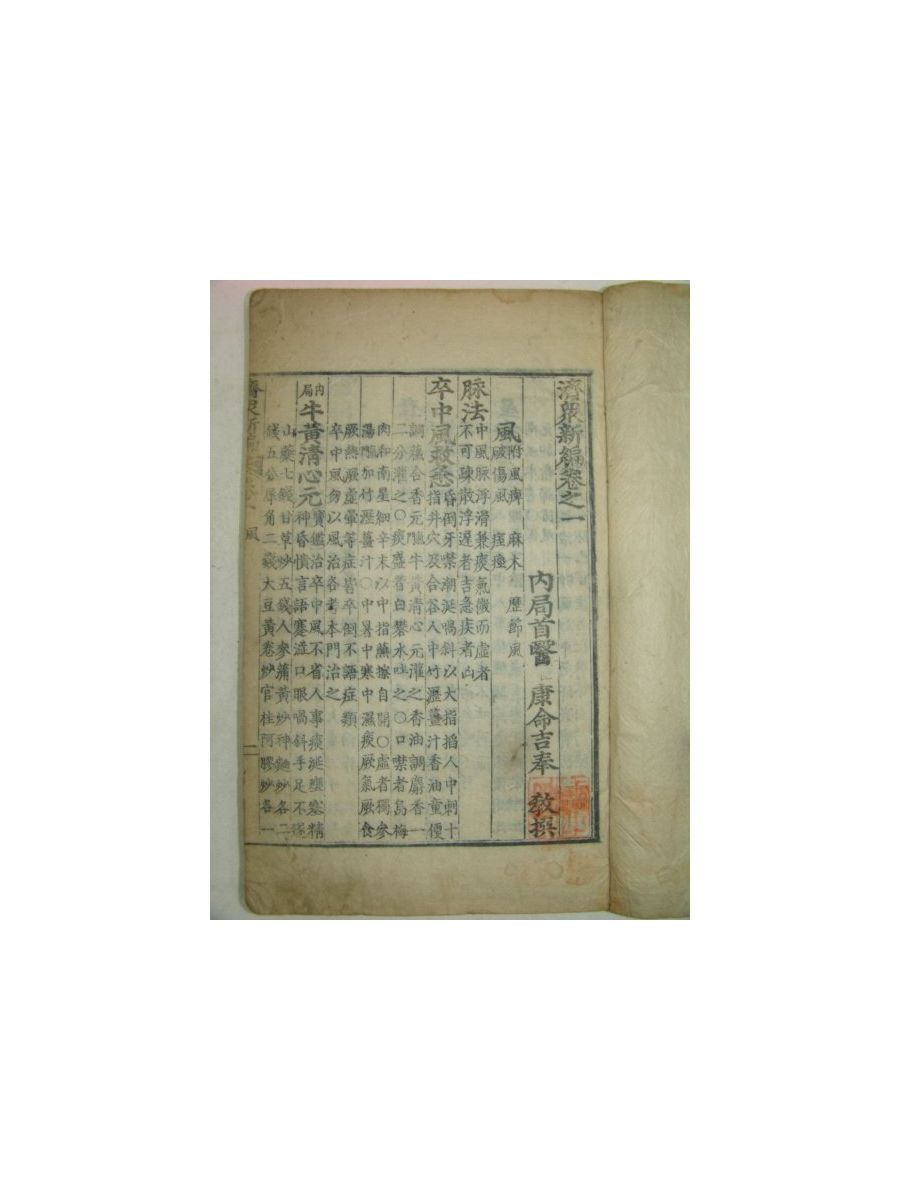 濟衆新編卷之一
內局首醫 康命吉奉 敎撰
風
附風痺 麻木 歷節風
破傷風 痓痙
脉法
中風脉浮滑兼痰氣微而虛者
不可踈散浮遲者吉急疾者凶
卒中風救急
昏倒牙噤潮涎喎斜以大指掐人中刺十
指井穴及合谷人中竹瀝薑汁香油童便
調蘓合香元臘牛黃淸心元灌之香油調麝香一
二分灌之〇痰盛者白礬水吐之〇口噤者烏梅
肉和南星細辛末以中指蘸擦自開〇虛者獨參
湯加竹瀝薑汁〇中暑中寒中濕痰厥氣厥食
厥熱厥虛暈等症皆卒倒不語症類
卒中風勿以風治各考本門治之
內局
牛黃淸心元
寶鑑治卒中風不省人事痰涎壅塞精
神昏憒言語蹇澁口眼喎斜手足不遂
山藥七錢甘草炒五錢人參蒲黃炒神麯炒各二
錢五分犀角二錢大豆黃卷炒官桂阿膠炒各一
濟衆新編卷一 風 一